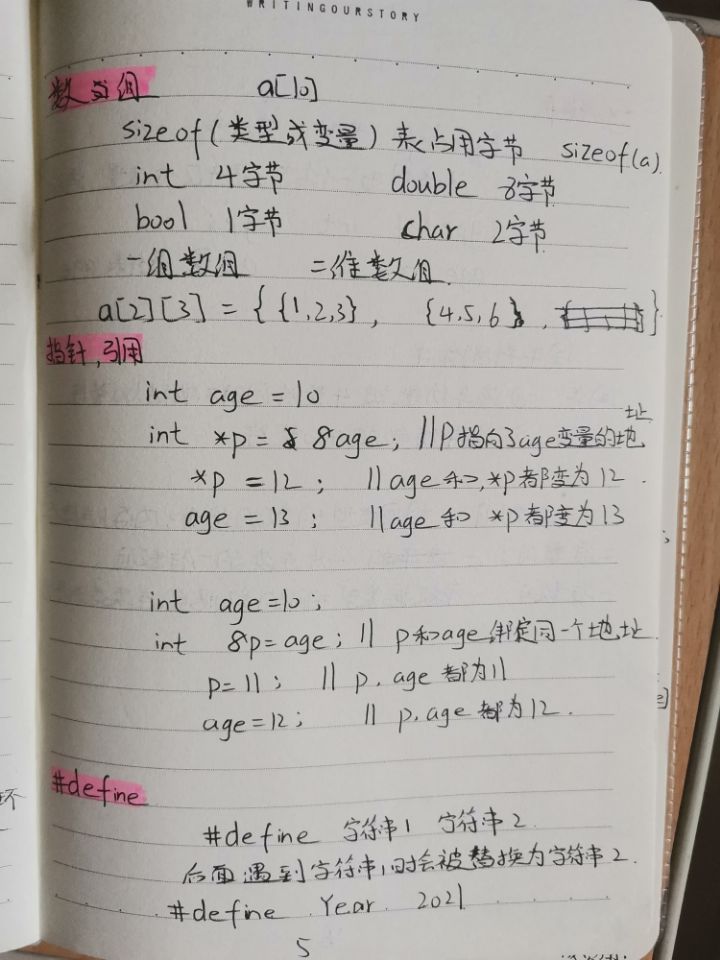 WRITINGOURSTORY
数组 a[10]
sizeof(类型或变量)表占用字节 sizeof(a)
int 4字节 double 8字节
bool 1字节 char 2字节
一组数组 二维数组
a[2][3] = { {1,2,3}, {4,5,6}, }
指针,引用
int age = 10
int *p = &age; //P指向了age变量的地址
*p = 12; //age和,*p都变为12.
age = 13; //age和 *p都变为13
int age=10;
int &p=age; // p和age绑定同一个地址
p=11; // p.age都为11
age=12; // p.age都为12.
#define
#define 字符串1 字符串2
后面遇到字符串1时会被替换为字符串2.
#define Year 2021
5